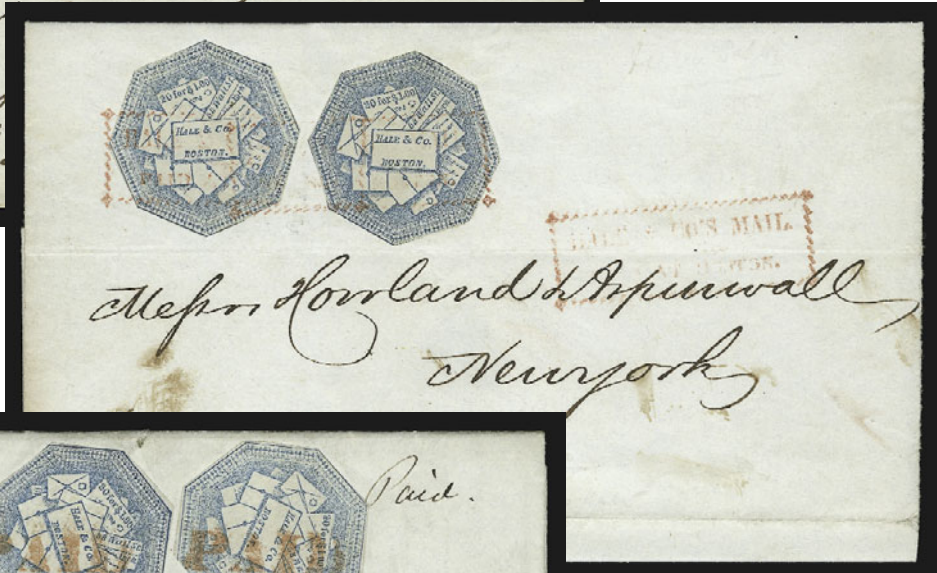 20 for $1.00
HALE & Co.
BOSTON.
20 for $1.00
HALE & Co.
BOSTON.
HALE & CO'S MAIL.
BOSTON.
Messrs Howland & Aspinwall
New york
Paid.
20 for $1.00
HALE & Co.
BOSTON.
HALE & Co.
BOSTON.